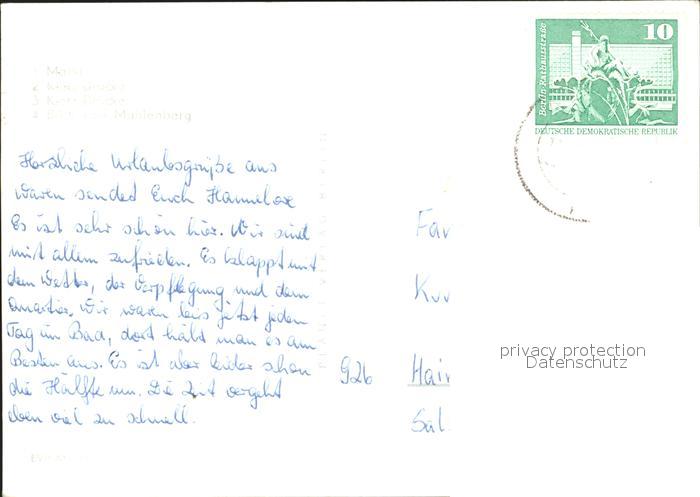 10
Berlin-Rathausstraße
DEUTSCHE DEMOKRATISCHE REPUBLIK
1 Markt
3 Kietz-Brücke
4 Blick vom Mühlenberg
Herzliche Urlaubsgrüße aus
Waren sendet Euch Hannelore
Es ist sehr schön hier. Wir sind
mit allem zufrieden. Es klappt mit
dem Wetter, der Verpflegung und dem
Quartier. Wir waren bis jetzt jeden
Tag im Bad, dort hält man es am
Besten aus. Es ist aber leider schon
die Hälfte um. Die Zeit vergeht
eben viel zu schnell.
Fav
926 Hain
privacy protection
Datenschutz